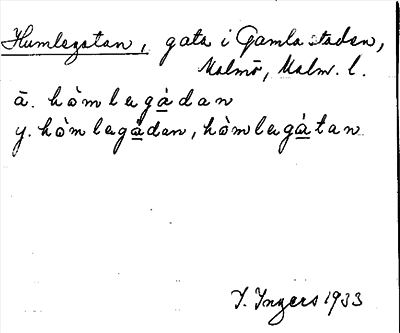 Humlegatan, gata i Gamla staden,
Malmö, Malm. l.
ä. hòmlegá̲dan
y. hòmlegá̲dan, hòmlegá̲tan
I. Ingers 1933